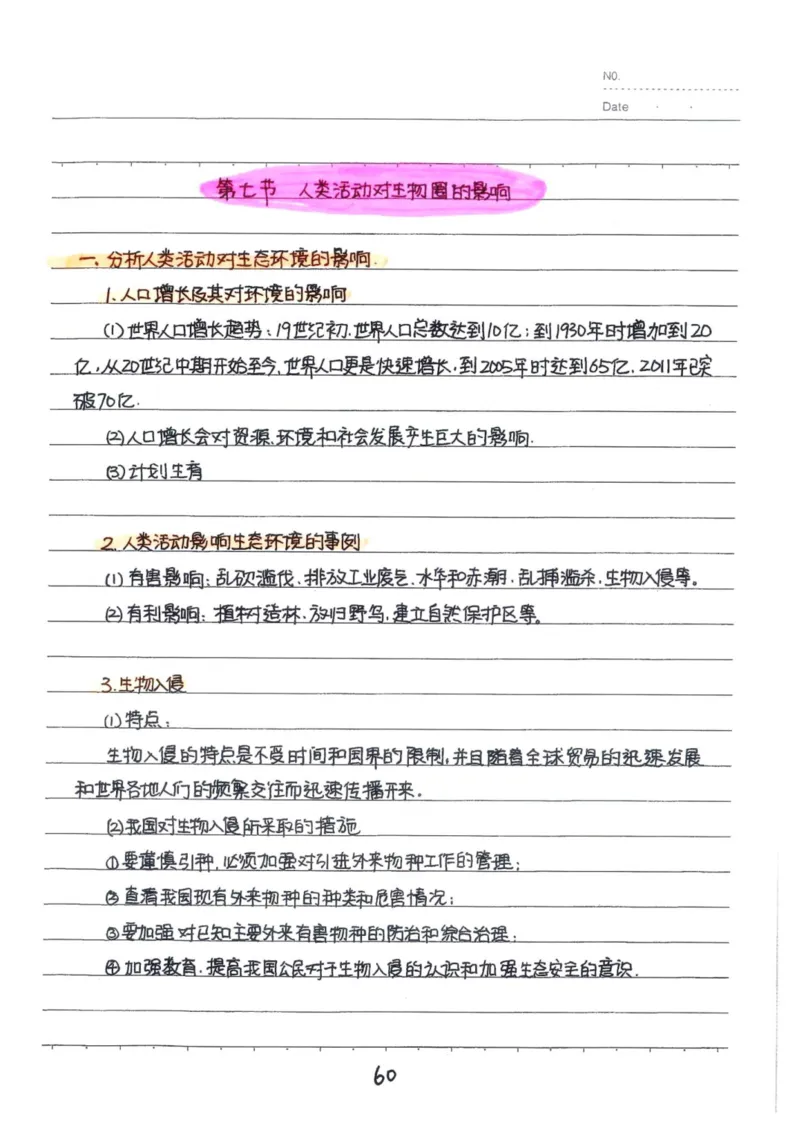 NO.
Date
第七节 人类活动对生物圈的影响
一、分析人类活动对生态环境的影响.
1.人口增长及其对环境的影响
(1)世界人口增长趋势:19世纪初,世界人口总数达到10亿;到1930年时增加到20
亿,从20世纪中期开始至今,世界人口更是快速增长,到2005年时达到65亿,2011年已突
破70亿.
(2)人口增长会对资源、环境和社会发展产生巨大的影响.
(3)计划生育
2.人类活动影响生态环境的事例
(1)有害影响:乱砍滥伐、排放工业废气、水华和赤潮、乱捕滥杀、生物入侵等。
(2)有利影响:植树造林、放归野鸟,建立自然保护区等。
3.生物入侵
(1)特点:
生物入侵的特点是不受时间和国界的限制,并且随着全球贸易的迅速发展
和世界各地人们的频繁交往而迅速传播开来.
(2)我国对生物入侵所采取的措施
①要谨慎引种,必须加强对引进外来物种工作的管理;
②查清我国现有外来物种的种类和危害情况;
③要加强对已知主要外来有害物种的防治和综合治理;
④加强教育,提高我国公民对于生物入侵的认识和加强生态安全的意识.
60